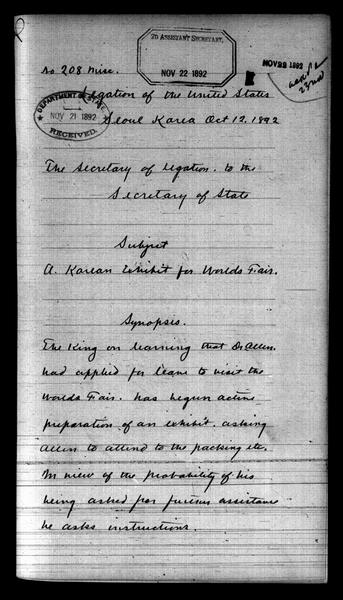 TO ASSISTANT SECRETARY,
NOV 22 1892
No 208 Misc.
NOV 23 1892
Legation of the United States
DEPARTMENT OF STATE
NOV 21 1892
RECEIVED
Seoul Korea Oct 12, 1892
The Secretary of Legation. to the
Secretary of State
Subject
A. Korean Exhibit for Worlds Fair.
Synopsis.
The King on learning that Dr Allen.
had applied for leave to visit the
Worlds Fair. has begun active
preparation of an exhibit. asking
Allen to attend to the packing etc.
In view of the probability of his
being asked for further assistance
he asks instructions.